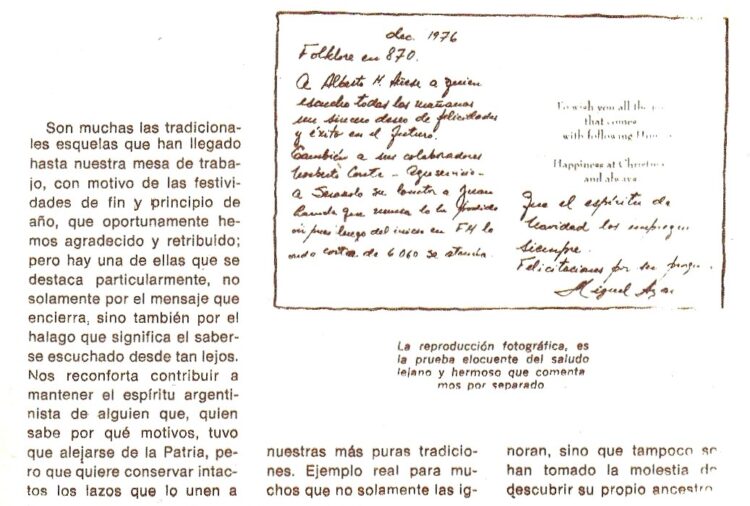 Son muchas las tradiciona-
les esquelas que han llegado
hasta nuestra mesa de traba-
jo, con motivo de las festivi-
dades de fin y principio de
año, que oportunamente he-
mos agradecido y retribuído;
pero hay una de ellas que se
destaca particularmente, no
solamente por el mensaje que
encierra, sino también por el
halago que significa el saber-
se escuchado desde tan lejos.
Nos reconforta contribuir a
mantener el espíritu argenti-
nista de alguien que, quien
sabe por qué motivos, tuvo
que alejarse de la Patria, pe-
ro que quiere conservar intac-
tos los lazos que lo unen a
dec. 1976
Folklore en 870.
A Alberto M. a quien
escucho todas las mañanas
un sincero deseo de felicidades
y éxito en el futuro.
También a sus colaboradores
Norberto
a su locutor a Juan
que nunca lo
luego del en FM la
onda corta de 6060 se
To wish you all the
that comes
with following
Happiness at
and always
Que el espíritu de
Navidad los
siempre.
Felicitaciones por su
Miguel
La reproducción fotográfica, es
la prueba elocuente del saludo
lejano y hermoso que comenta
mos por separado
nuestras más puras tradicio-
nes. Ejemplo real para mu-
chos que no solamente las ig-
noran, sino que tampoco se
han tomado la molestia de
descubrir su propio ancestro